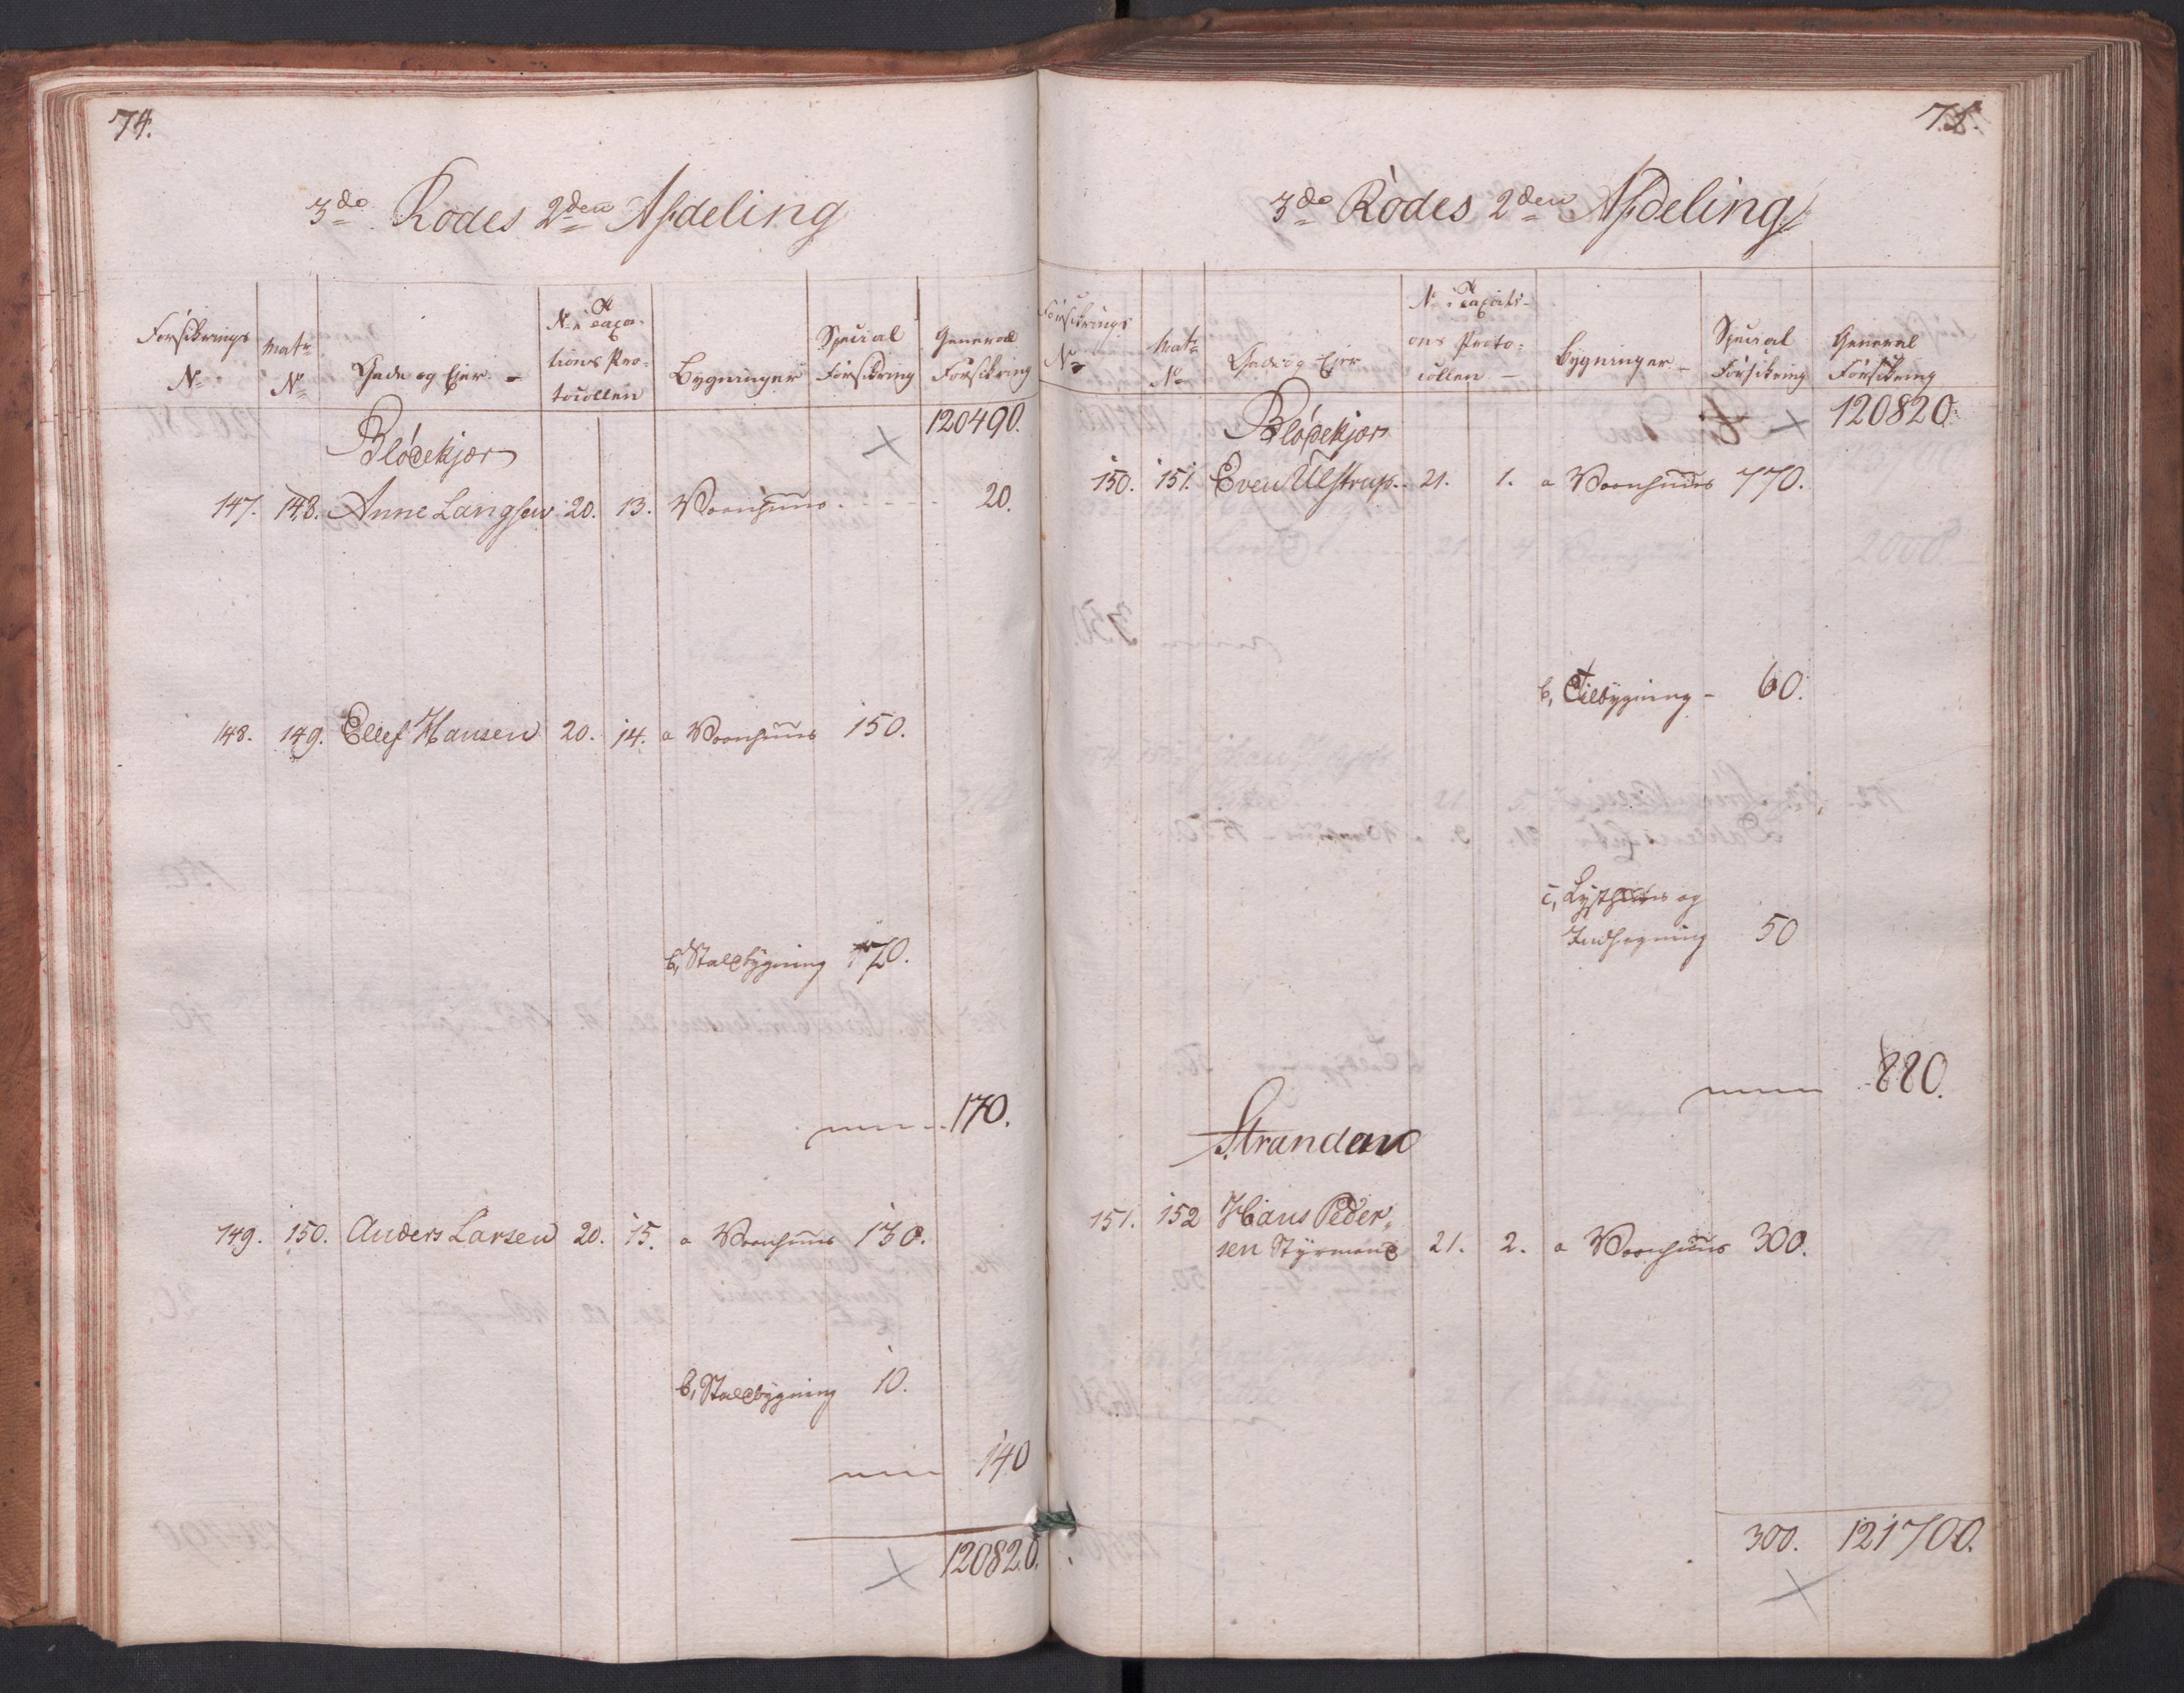 74.
3do Rodes 2den Afdeling
Forsikrings No
Matr No
Gade og Ejer
No i Taxationes Protocollen
Bygninger
Special Forsikring
General Forsikring
120490.
Blødekjær
147. 148. Anne Langsen 20. 13. Vaanhuus 20.
148. 149. Ellef Hansen 20. 14. a Vaanhuus 150.
b, Staldbygning 20.
170.
149. 150. Anders Larsen 20. 15. a Vaanhuus 130.
b, Staldbygning 10.
140
120820.
75.
3do Rodes 2den Afdeling
Forsikrings No
Matr No
Gade og Ejer
No i Taxations Protocollen
Bygninger
Special Forsikring
General Forsikring
120820.
Blødekjær
150. 151. Even Ulstrup. 21. 1. a Vaanhuus 770.
b, Tilbygning 60.
c, Lysthuus og
Indhegning 50
880.
Stranden
151. 152 Hans Peder-
sen Styrmand 21. 2. a Vaanhuus 300.
300. 121700.